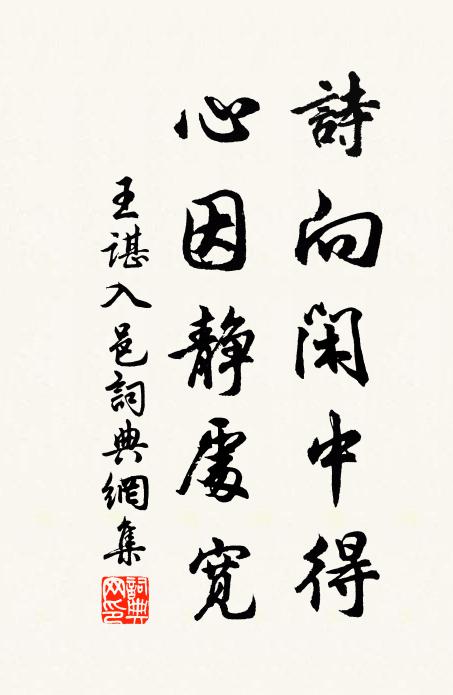 詩向閑中得
心因靜處寬
王諶入邑詞典網集
詞典網印